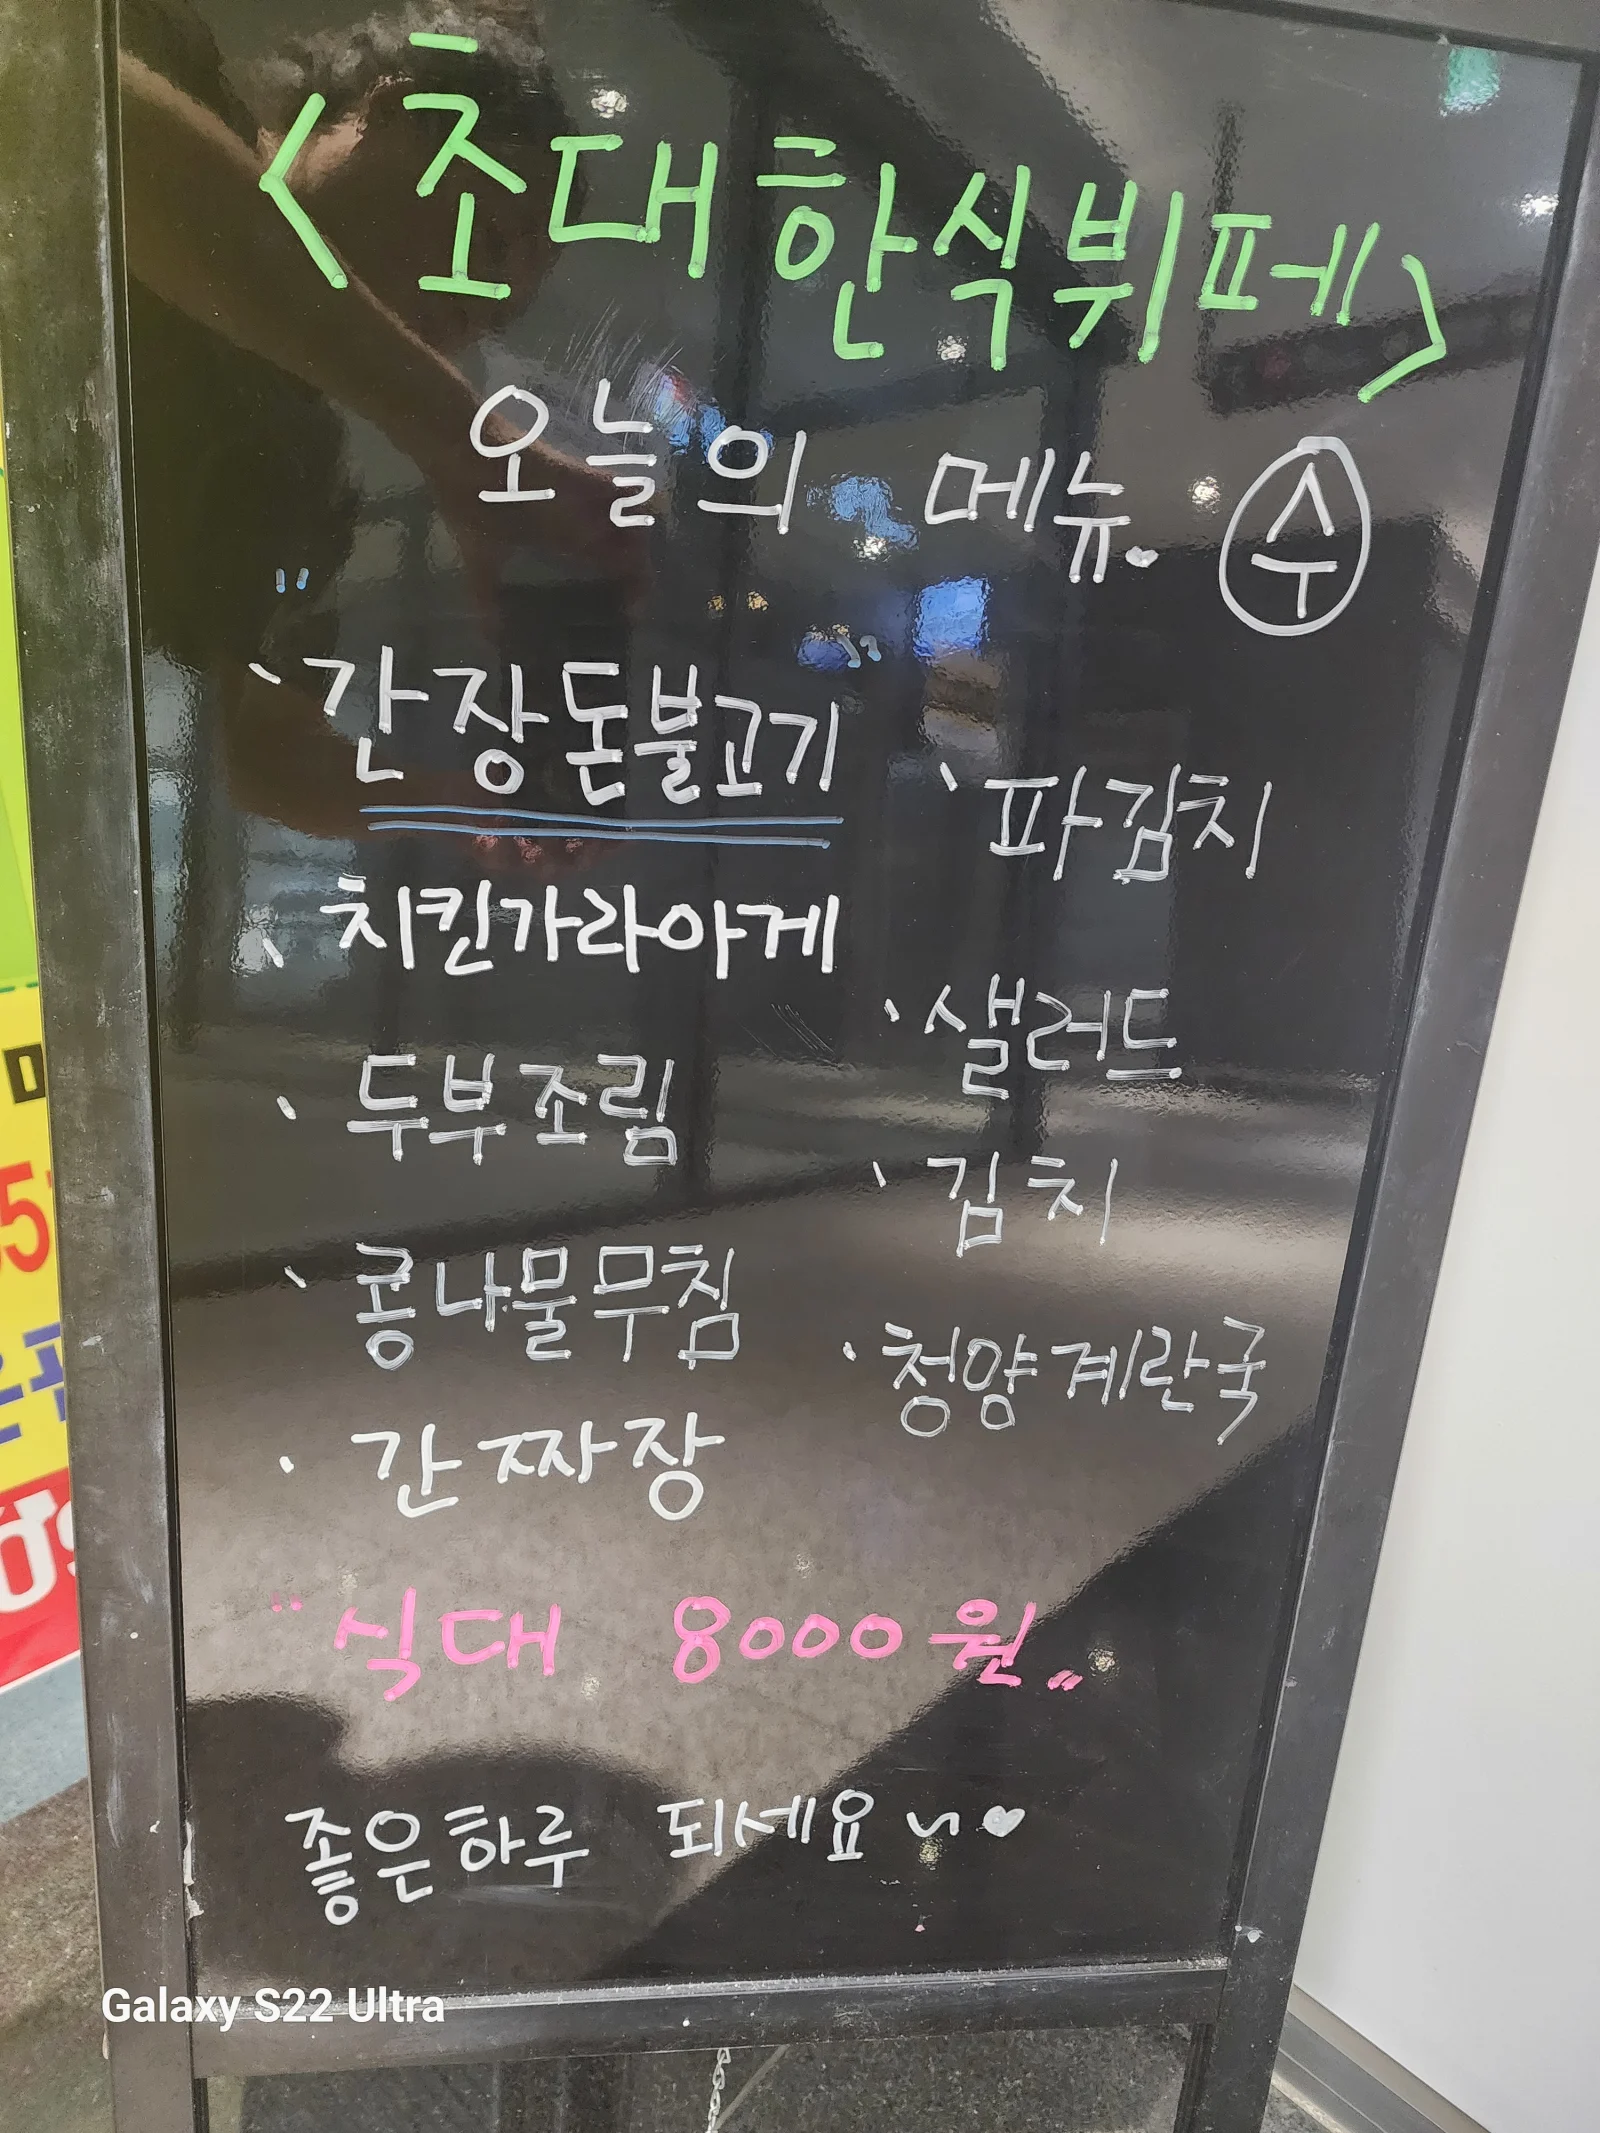 <초대한식뷔페>
오늘의 메뉴. 수
" 간장돈불고기 "
치킨가라아게
두부조림
콩나물무침
간짜장
파김치
샐러드
김치
청양계란국
" 식대 8000원 "
좋은하루 되세요~♥
Galaxy S22 Ultra